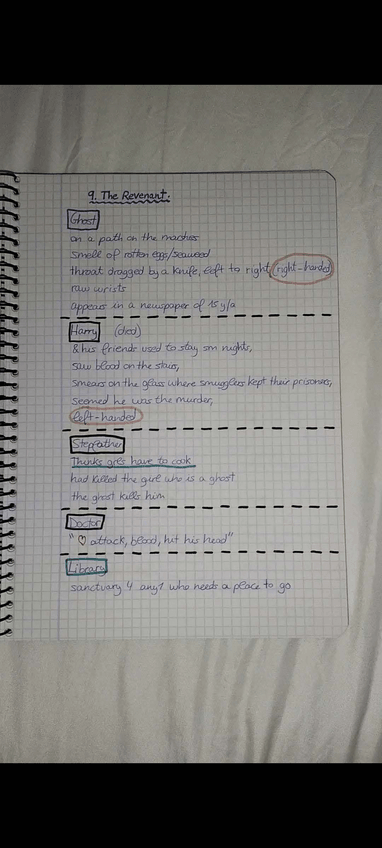 9. The Revenant.
Ghost
on a path on the marshes
smell of rotten eggs/seaweed
throat dragged by a knife, left to right right-handed
raw wrists
appears in a newspaper of 15 y/a
Harry (died)
& his friends used to stay sm nights,
saw blood on the stairs,
smears on the glass where smugglers kept their prisoners,
seemed he was the murder,
left-handed
Stepfather
Thinks grls have to cook
had killed the girl who is a ghost
the ghost kills him
Doctor
"♡ attack, blood, hit his head"
Library
sanctuary 4 any1 who needs a place to go